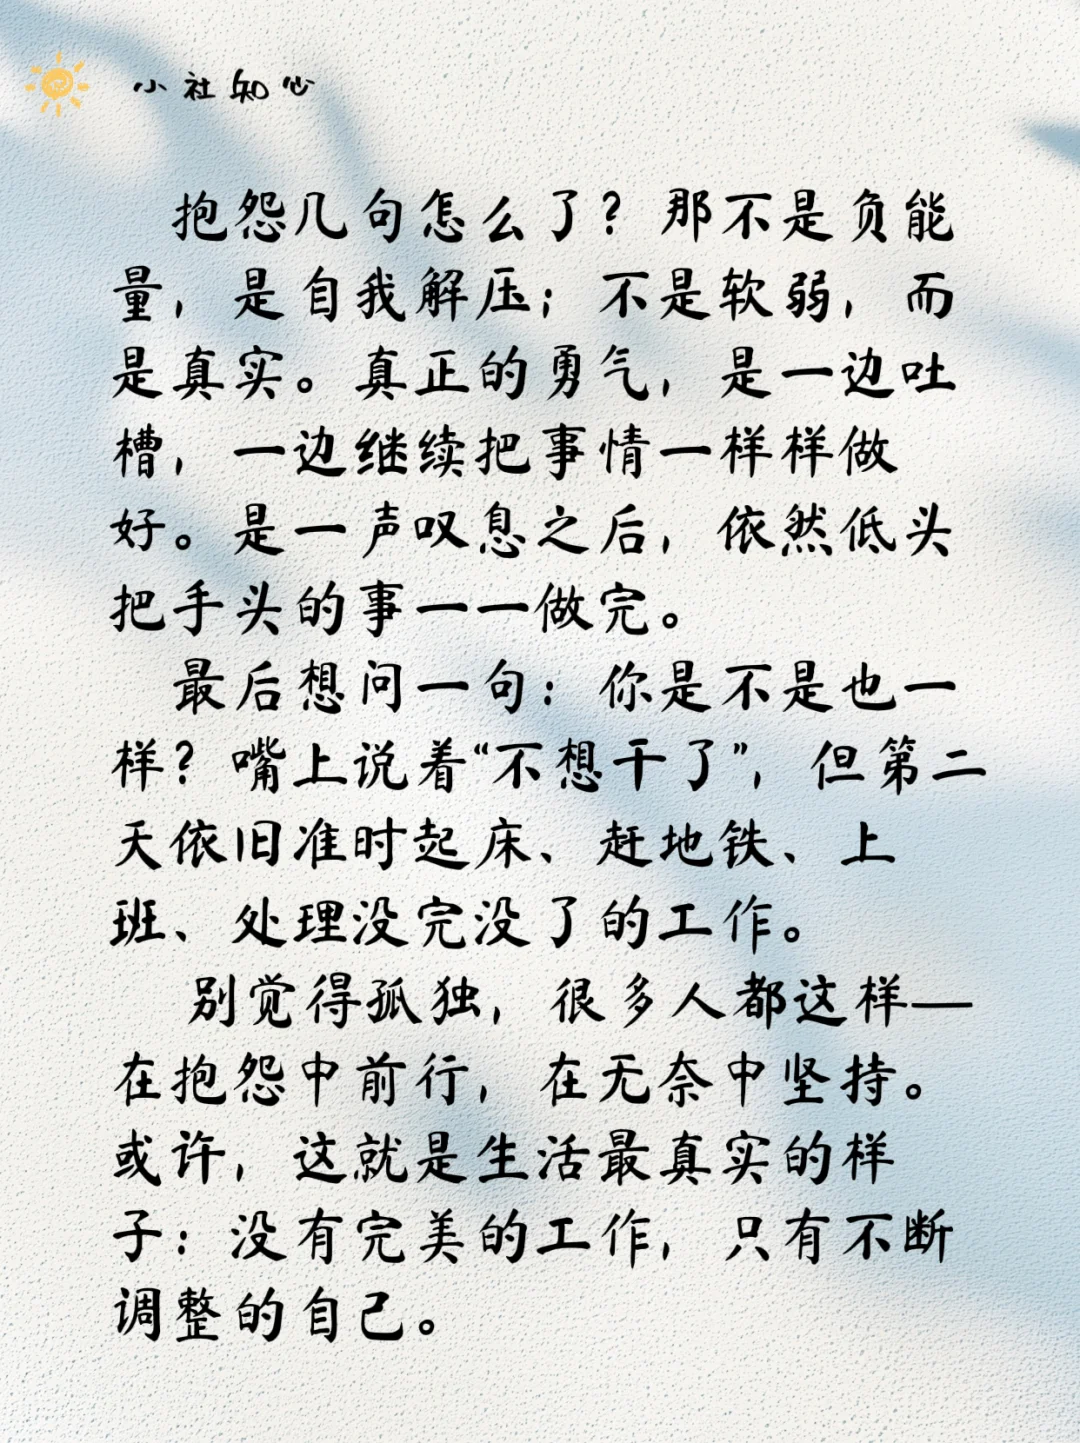 小社知心
抱怨几句怎么了？那不是负能
量，是自我解压；不是软弱，而
是真实。真正的勇气，是一边吐
槽，一边继续把事情一样样做
好。是一声叹息之后，依然低头
把手头的事一一做完。
最后想问一句：你是不是也一
样？嘴上说着“不想干了”，但第二
天依旧准时起床、赶地铁、上
班、处理没完没了的工作。
别觉得孤独，很多人都这样—
在抱怨中前行，在无奈中坚持。
或许，这就是生活最真实的样
子：没有完美的工作，只有不断
调整的自己。